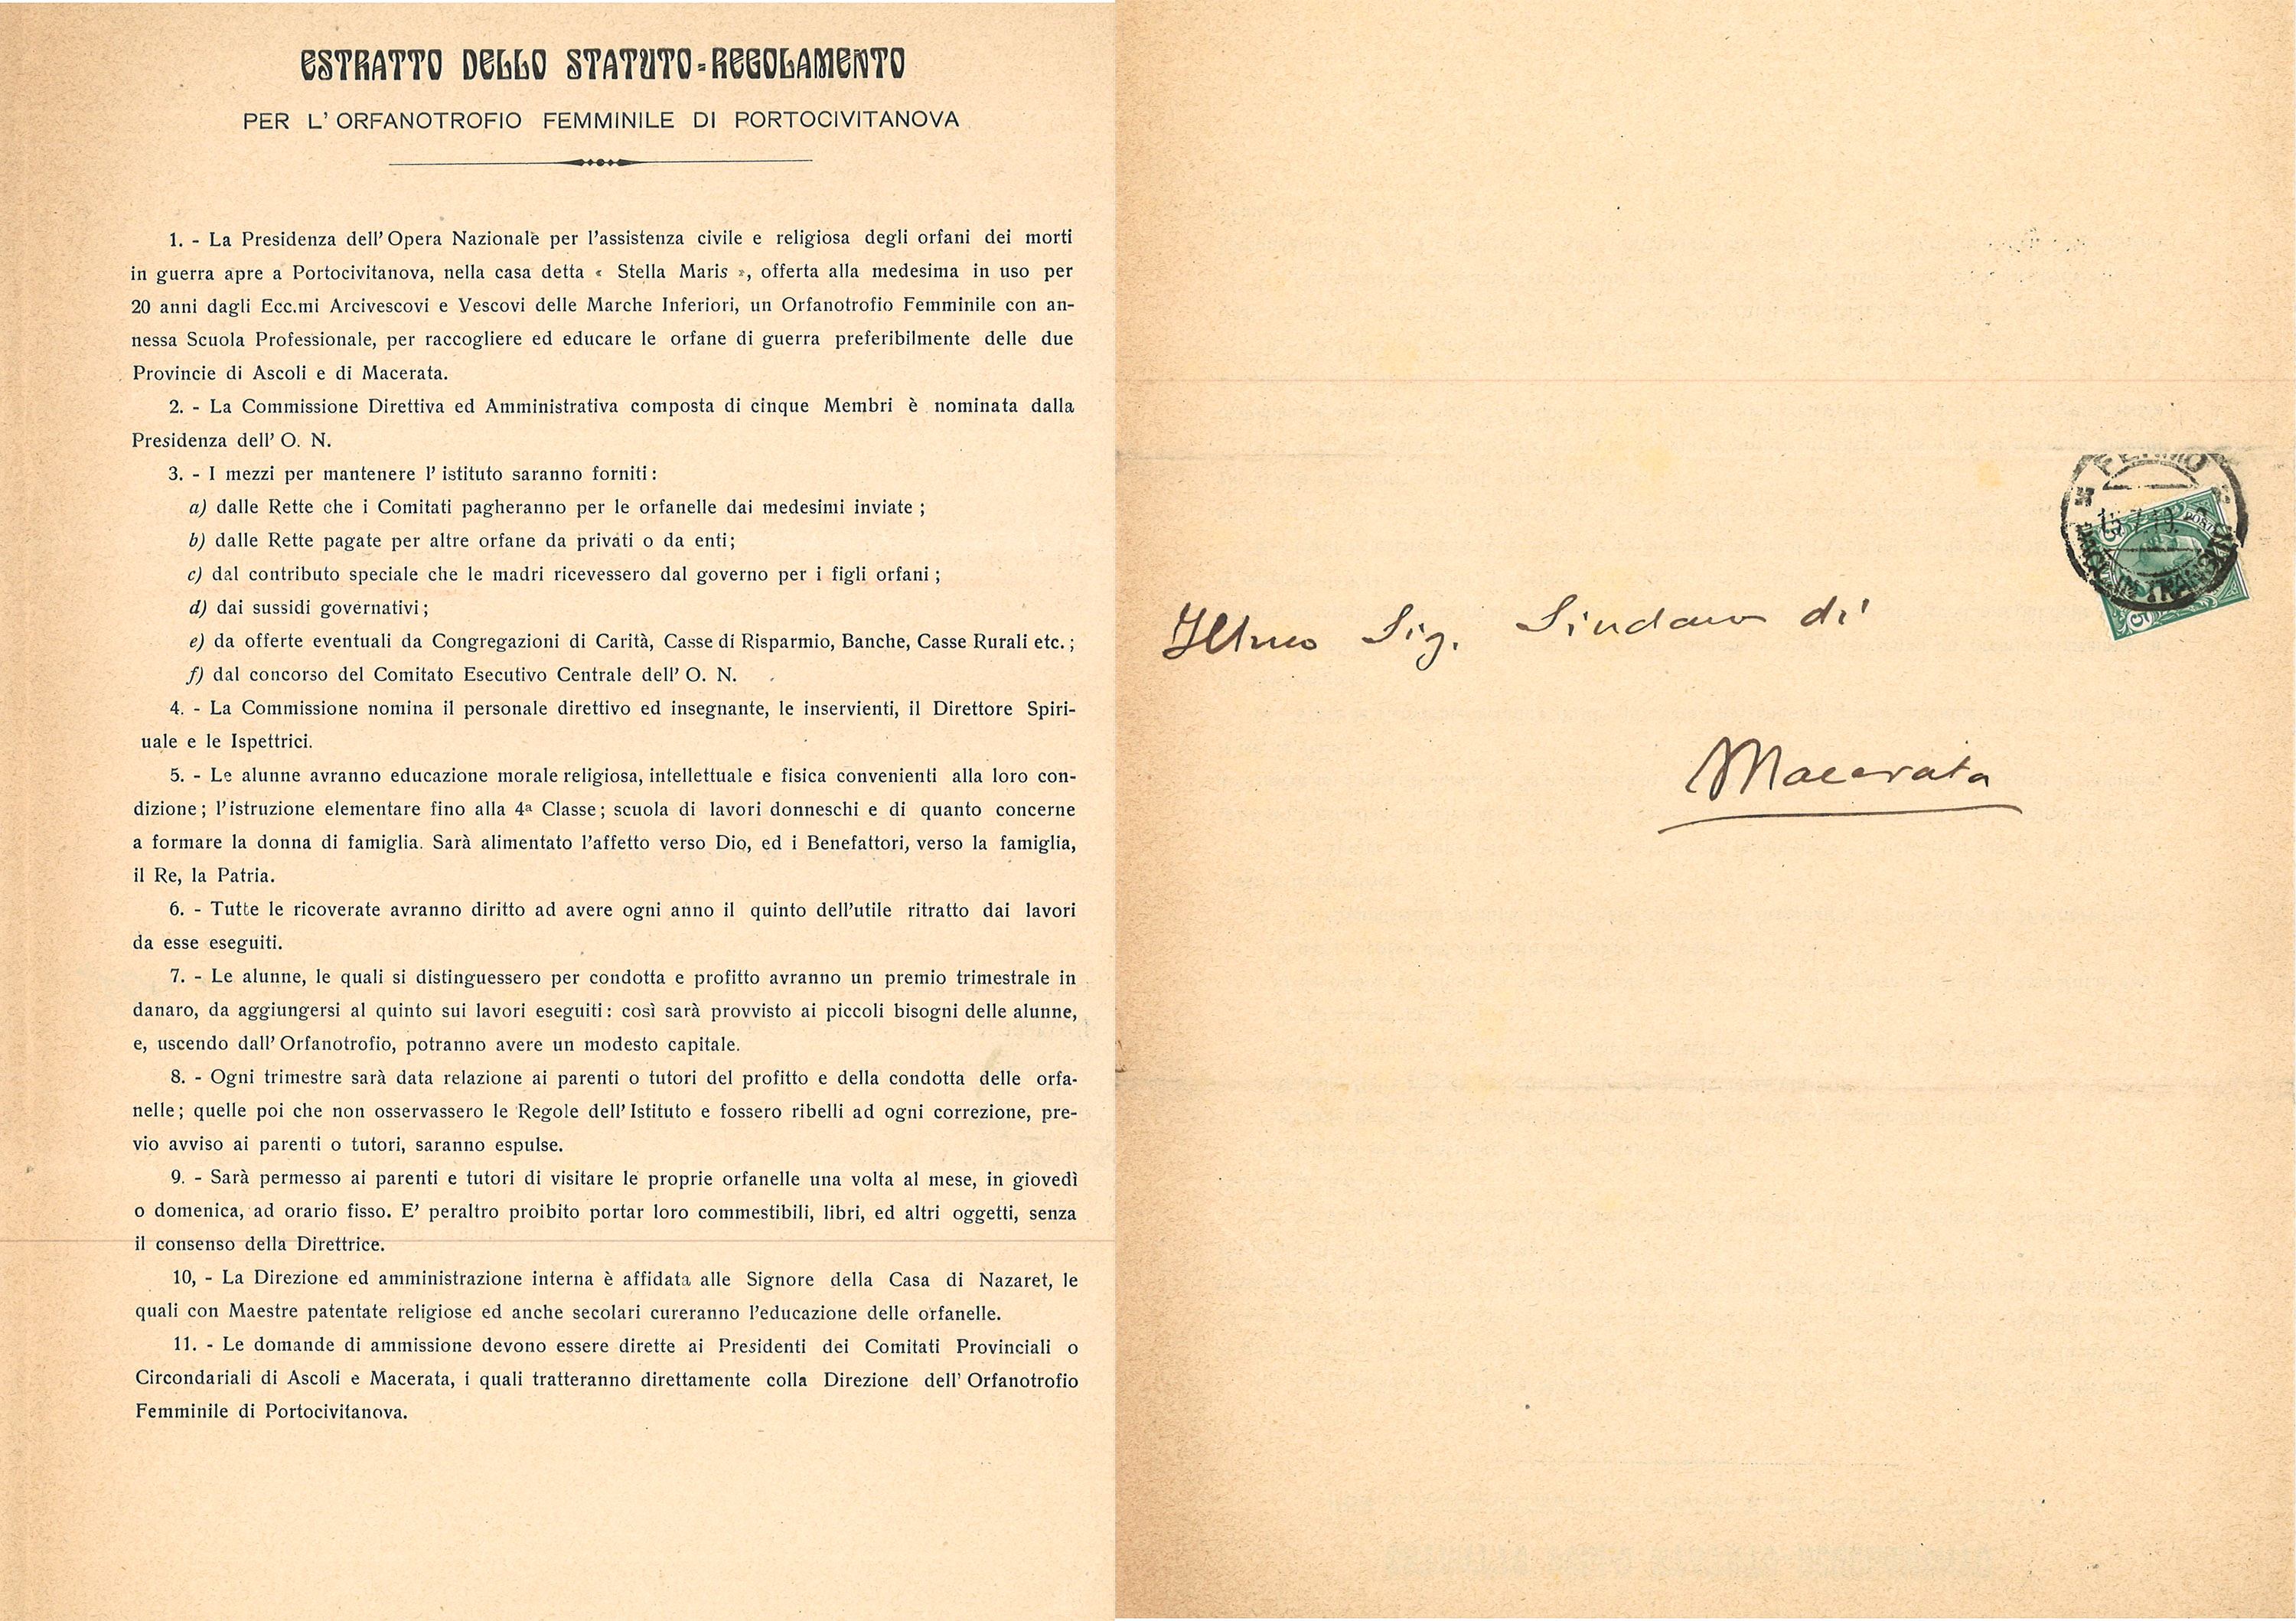 ESTRATTO DELLO STATUTO-REGOLAMENTO
PER L' ORFANOTROFIO FEMMINILE DI PORTOCIVITANOVA
1. - La Presidenza dell' Opera Nazionale per l'assistenza civile e religiosa degli orfani dei morti
in guerra apre a Portocivitanova, nella casa detta « Stella Maris », offerta alla medesima in uso per
20 anni dagli Ecc.mi Arcivescovi e Vescovi delle Marche Inferiori, un Orfanotrofio Femminile con an-
nessa Scuola Professionale, per raccogliere ed educare le orfane di guerra preferibilmente delle due
Provincie di Ascoli e di Macerata.
2. - La Commissione Direttiva ed Amministrativa composta di cinque Membri è nominata dalla
Presidenza dell' O. N.
3. - I mezzi per mantenere l' istituto saranno forniti :
a) dalle Rette che i Comitati pagheranno per le orfanelle dai medesimi inviate ;
b) dalle Rette pagate per altre orfane da privati o da enti;
c) dal contributo speciale che le madri ricevessero dal governo per i figli orfani ;
d) dai sussidi governativi ;
e) da offerte eventuali da Congregazioni di Carità, Casse di Risparmio, Banche, Casse Rurali etc. ;
f) dal concorso del Comitato Esecutivo Centrale dell' O. N.
4. - La Commissione nomina il personale direttivo ed insegnante, le inservienti, il Direttore Spiri-
uale e le Ispettrici.
5. - Le alunne avranno educazione morale religiosa, intellettuale e fisica convenienti alla loro con-
dizione ; l'istruzione elementare fino alla 4ª Classe ; scuola di lavori donneschi e di quanto concerne
a formare la donna di famiglia. Sarà alimentato l'affetto verso Dio, ed i Benefattori, verso la famiglia,
il Re, la Patria.
6. - Tutte le ricoverate avranno diritto ad avere ogni anno il quinto dell'utile ritratto dai lavori
da esse eseguiti.
7. - Le alunne, le quali si distinguessero per condotta e profitto avranno un premio trimestrale in
danaro, da aggiungersi al quinto sui lavori eseguiti : così sarà provvisto ai piccoli bisogni delle alunne,
e, uscendo dall' Orfanotrofio, potranno avere un modesto capitale.
8. - Ogni trimestre sarà data relazione ai parenti o tutori del profitto e della condotta delle orfa-
nelle ; quelle poi che non osservassero le Regole dell' Istituto e fossero ribelli ad ogni correzione, pre-
vio avviso ai parenti o tutori, saranno espulse.
9. - Sarà permesso ai parenti e tutori di visitare le proprie orfanelle una volta al mese, in giovedì
o domenica, ad orario fisso. E' peraltro proibito portar loro commestibili, libri, ed altri oggetti, senza
il consenso della Direttrice.
10, - La Direzione ed amministrazione interna è affidata alle Signore della Casa di Nazaret, le
quali con Maestre patentate religiose ed anche secolari cureranno l'educazione delle orfanelle.
11. - Le domande di ammissione devono essere dirette ai Presidenti dei Comitati Provinciali o
Circondariali di Ascoli e Macerata, i quali tratteranno direttamente colla Direzione dell' Orfanotrofio
Femminile di Portocivitanova.
Illmo Sig. Sindaco di
Macerata